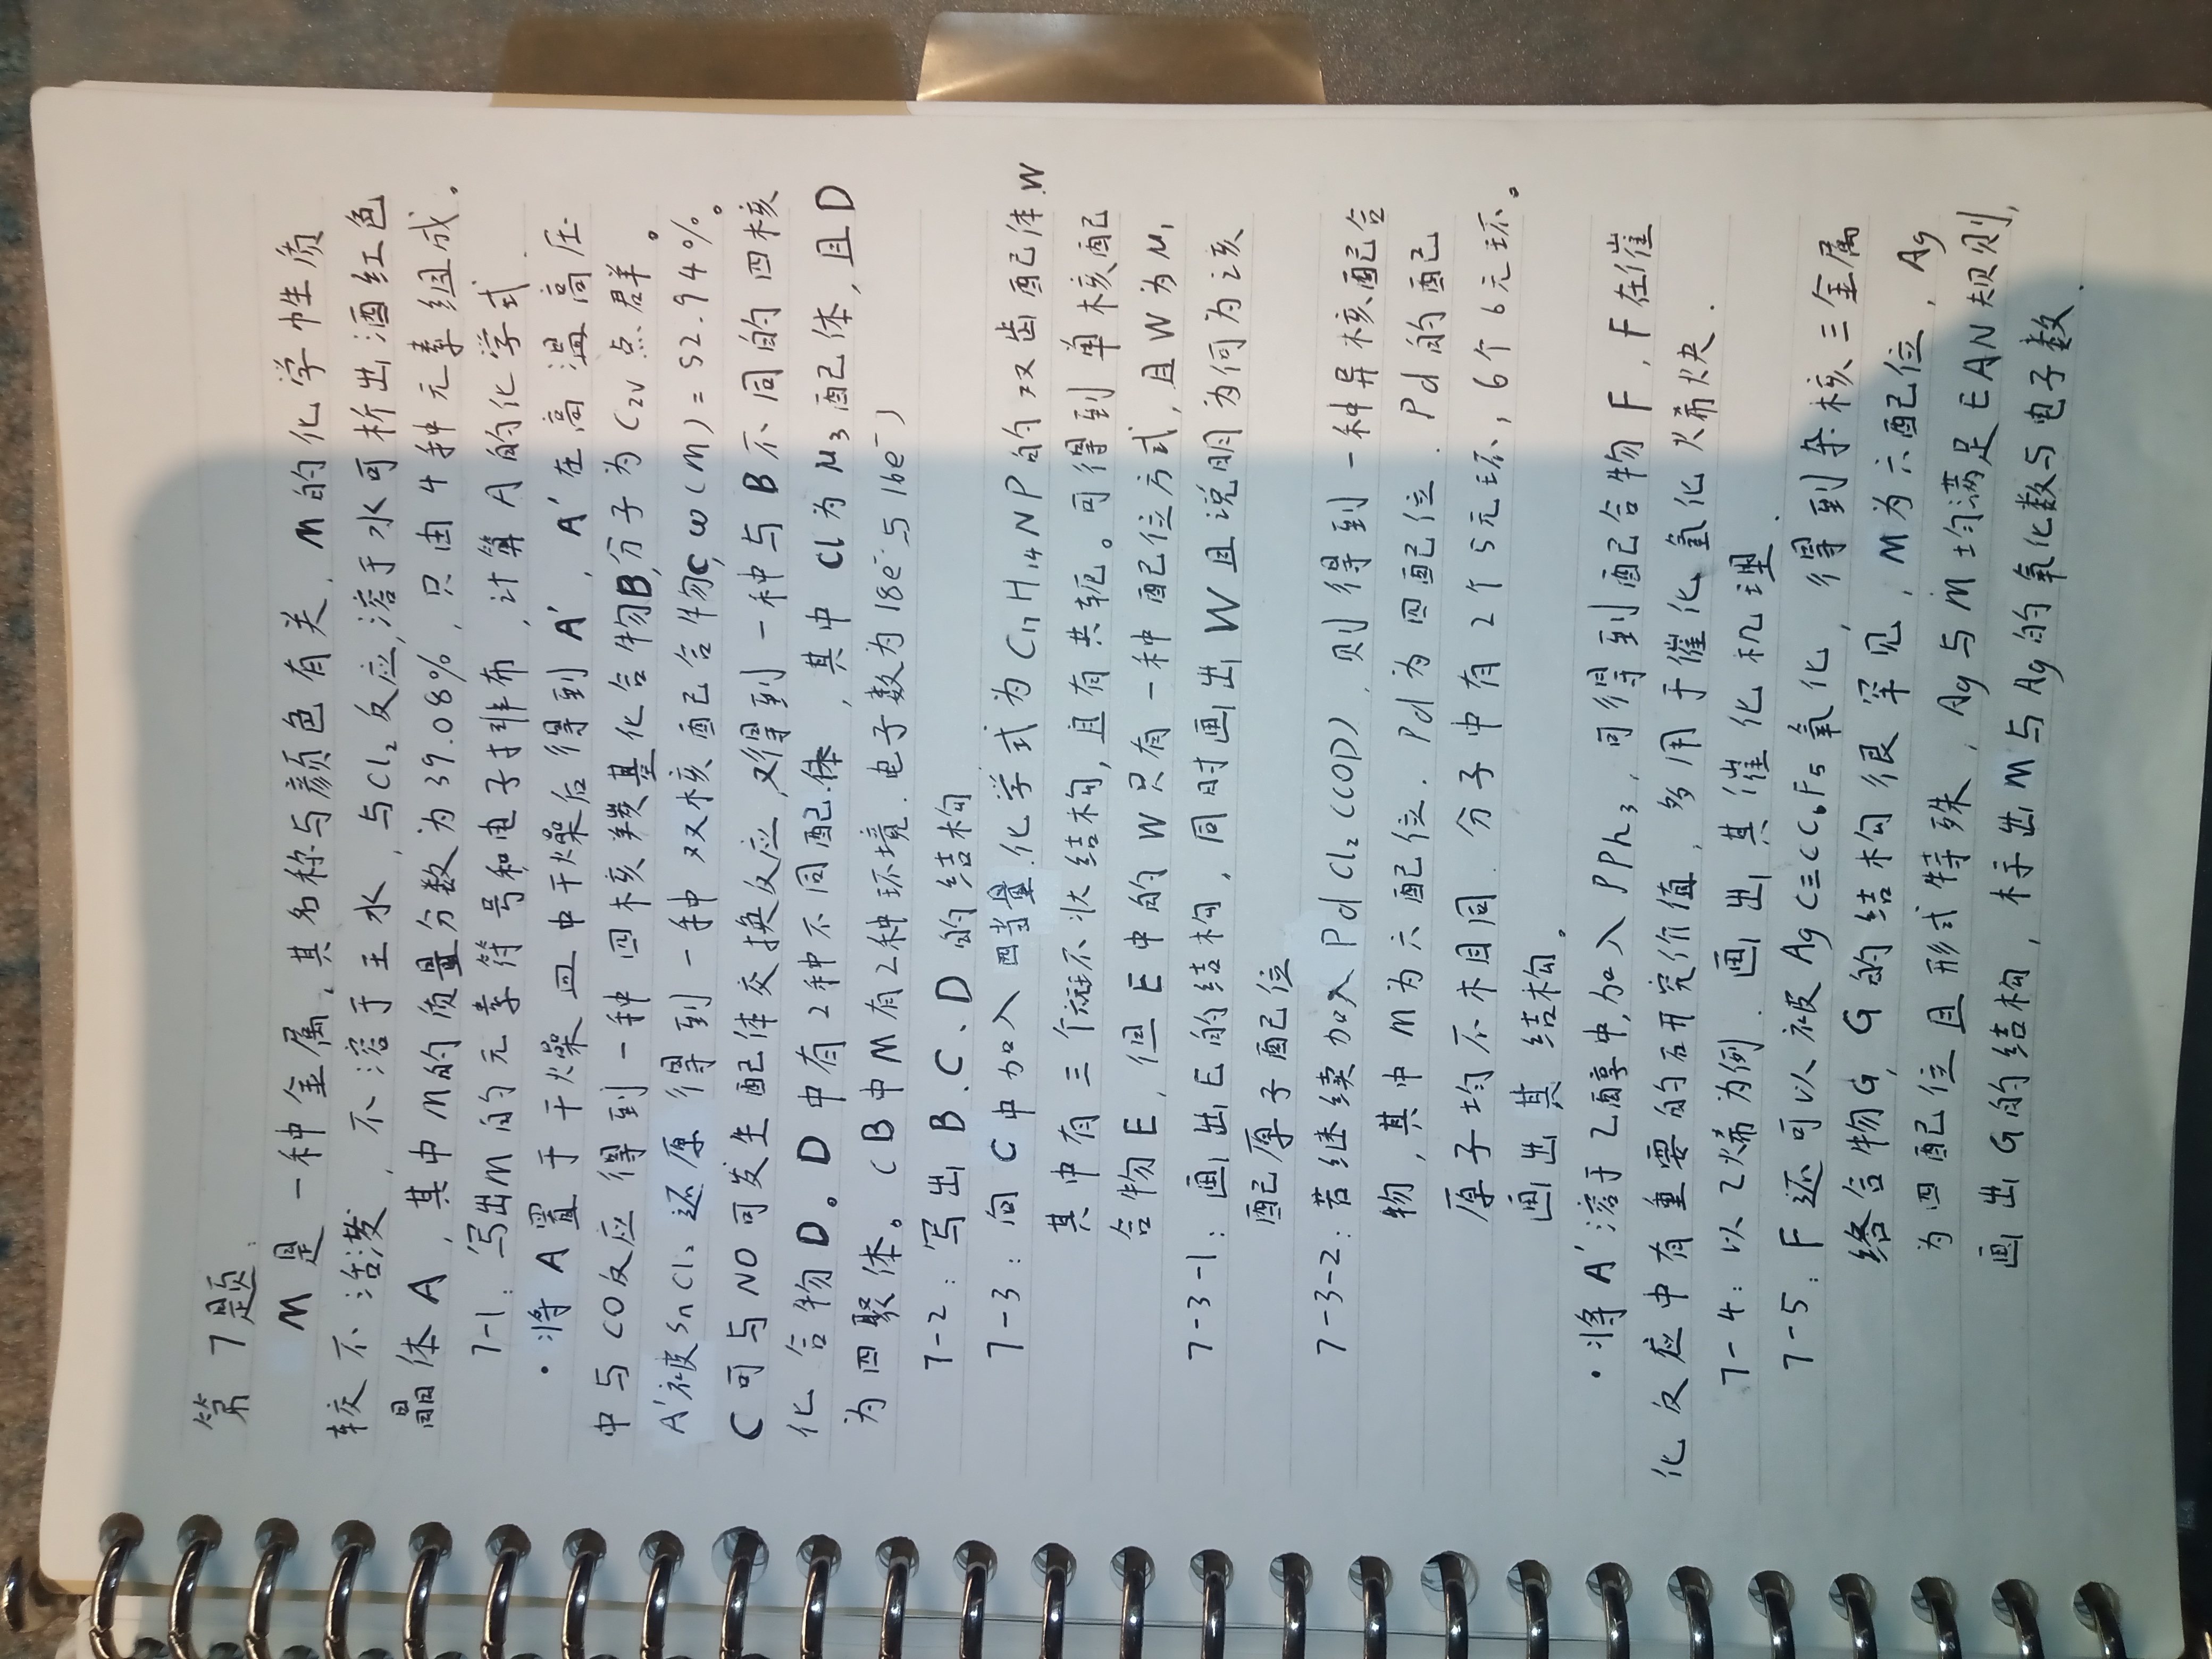 第7题:
M是一种金属,其名称与颜色有关,M的化学性质
较不活泼,不溶于王水,与Cl₂反应,溶于水可析出酒红色
晶体A,其中M的质量分数为39.08%,只由4种元素组成。
7-1:写出M的元素符号和电子排布,计算A的化学式.
·将A置于干燥皿中干燥后得到A',A'在高温高压
中与CO反应得到一种四核羰基化合物B,分子为C₂ᵥ点群。
A'被SnCl₂还原得到一种双核配合物C,ω(M)=52.94%。
C可与NO可发生配体交换反应,又得到一种与B不同的四核
化合物D。D中有2种不同配体,其中Cl为μ₃配体,且D
为四聚体。(B中M有2种环境.电子数为18e⁻与16e⁻)
7-2:写出B、C、D的结构
7-3:向C中加入四当量化学式为C₁₇H₁₄NP的双齿配体W
其中有三个环状结构,且有共轭。可得到单核配
合物E,但E中的W只有一种配位方式,且W为μ₁
7-3-1:画出E的结构,同时画出W且说明为何为该
配原子配位
7-3-2:若继续加入PdCl₂(COD),则得到一种异核配合
物,其中M为六配位,Pd为四配位.Pd的配
原子均不相同.分子中有2个5元环,6个6元环。
画出其结构。
·将A'溶于乙醇中,加入PPh₃,可得到配合物F,F在催
化反应中有重要的研究价值,多用于催化氢化烯炔.
7-4:以乙烯为例.画出其催化机理.
7-5:F还可以被AgC≡CC₆F₅氧化,得到杂核三金属
络合物G,G的结构很罕见,M为六配位,Ag
为四配位且形式特殊,Ag与M均满足EAN规则,
画出G的结构,标出M与Ag的氧化数与电子数.